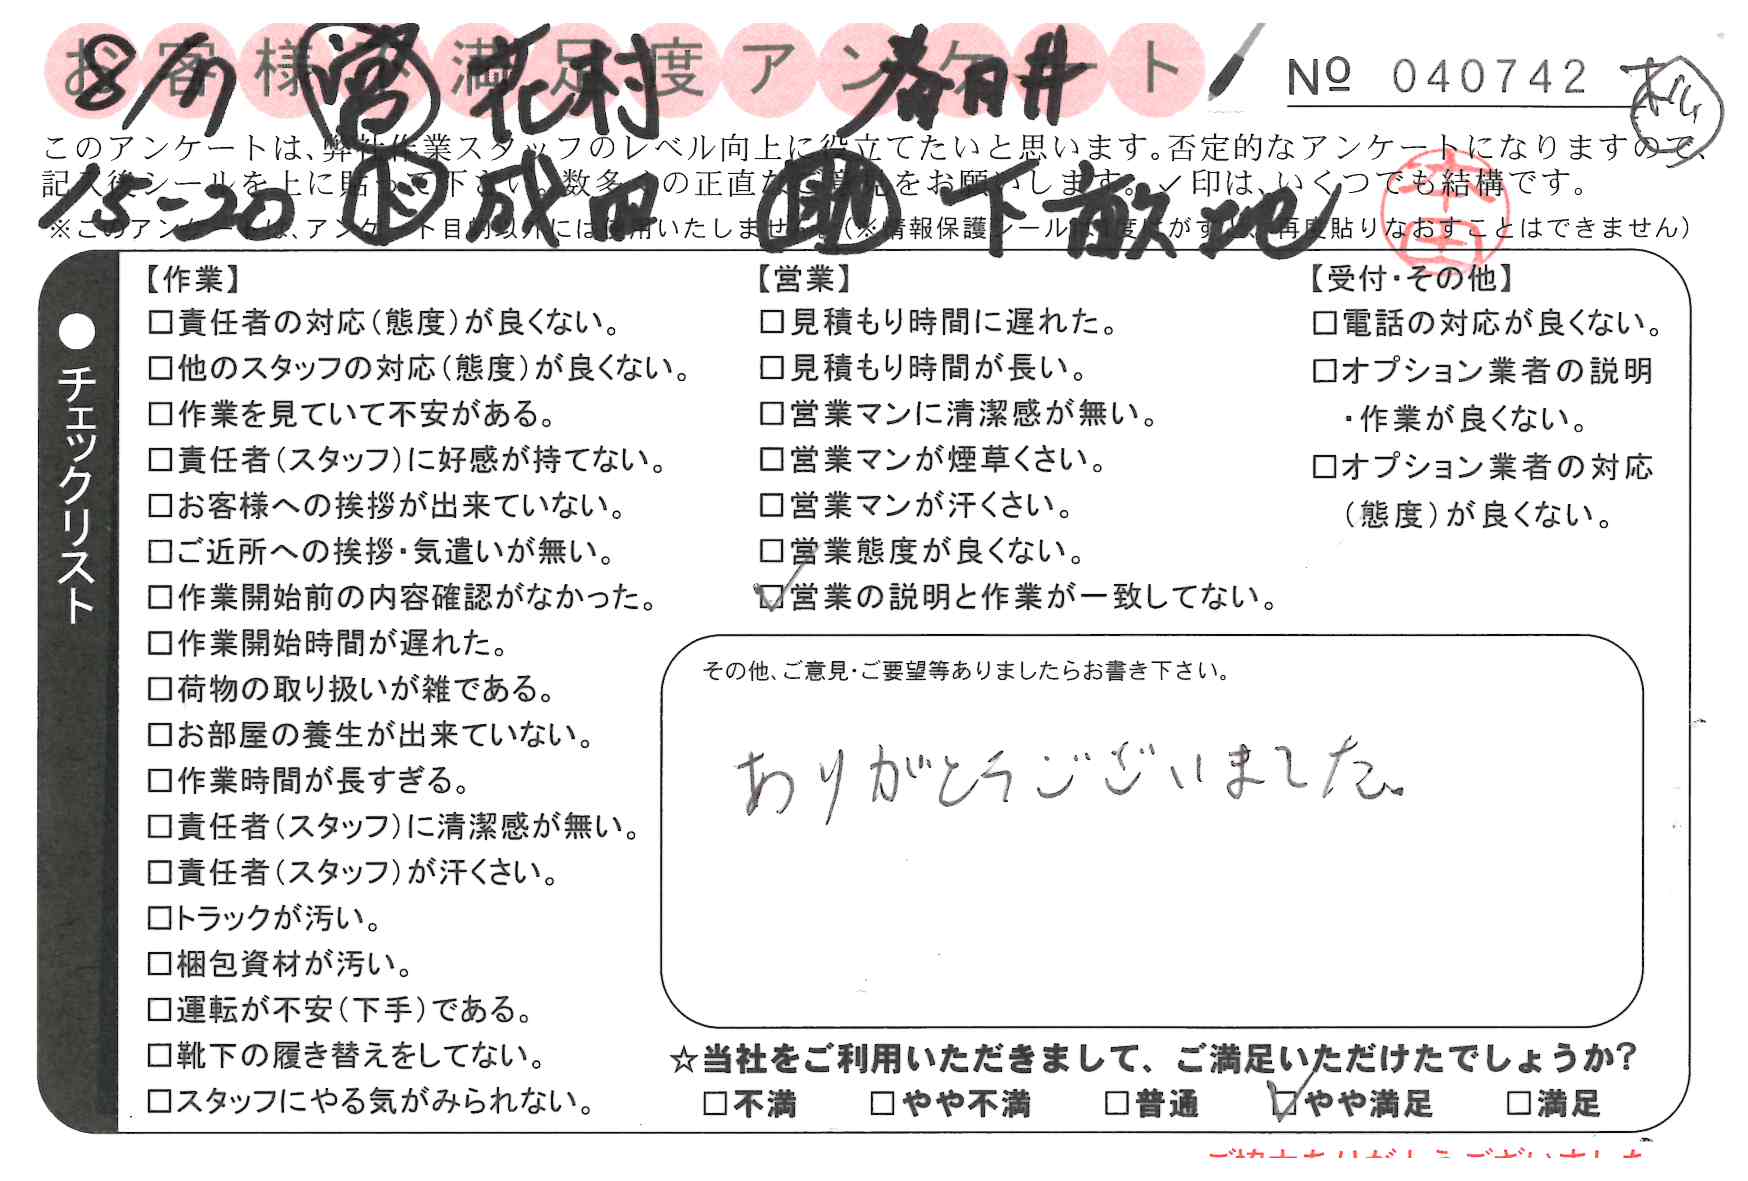 お客様の満足度アンケート
№ 040742
8/17 営 花村 春日井
このアンケートは、弊社作業スタッフのレベル向上に役立てたいと思います。否定的なアンケートになりますので、
記入後シールを上に貼って下さい。数多くの正直なご意見をお願いします。✓印は、いくつでも結構です。
15-20 ド 成田 助 下敷地
※このアンケートは、アンケート目的以外には使用いたしません。(※情報保護シールは1度はがすと、再度貼りなおすことはできません)
●チェックリスト
【作業】
□責任者の対応(態度)が良くない。
□他のスタッフの対応(態度)が良くない。
□作業を見ていて不安がある。
□責任者(スタッフ)に好感が持てない。
□お客様への挨拶が出来ていない。
□ご近所への挨拶・気遣いが無い。
□作業開始前の内容確認がなかった。
□作業開始時間が遅れた。
□荷物の取り扱いが雑である。
□お部屋の養生が出来ていない。
□作業時間が長すぎる。
□責任者(スタッフ)に清潔感が無い。
□責任者(スタッフ)が汗くさい。
□トラックが汚い。
□梱包資材が汚い。
□運転が不安(下手)である。
□靴下の履き替えをしてない。
□スタッフにやる気がみられない。
【営業】
□見積もり時間に遅れた。
□見積もり時間が長い。
□営業マンに清潔感が無い。
□営業マンが煙草くさい。
□営業マンが汗くさい。
□営業態度が良くない。
☑営業の説明と作業が一致してない。
【受付・その他】
□電話の対応が良くない。
□オプション業者の説明
・作業が良くない。
□オプション業者の対応
(態度)が良くない。
その他、ご意見・ご要望等ありましたらお書き下さい。
ありがとうございました。
☆当社をご利用いただきまして、ご満足いただけたでしょうか?
□不満 □やや不満 □普通 ☑やや満足 □満足
ご協力ありがとうございました